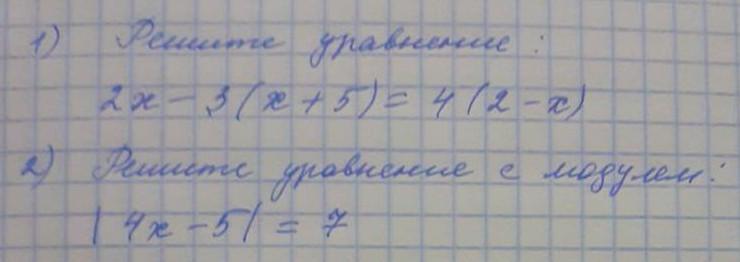 1) Решите уравнение:
2x - 3(x + 5) = 4(2 - x)
2) Решите уравнение с модулем:
|4x - 5| = 7